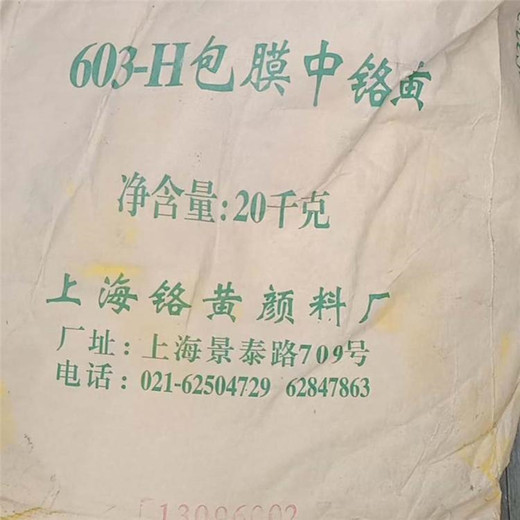 603-H包膜中铬黄
净含量:20千克
上海铬黄颜料厂
厂址:上海景泰路709号
电话:021-62504729 62847863